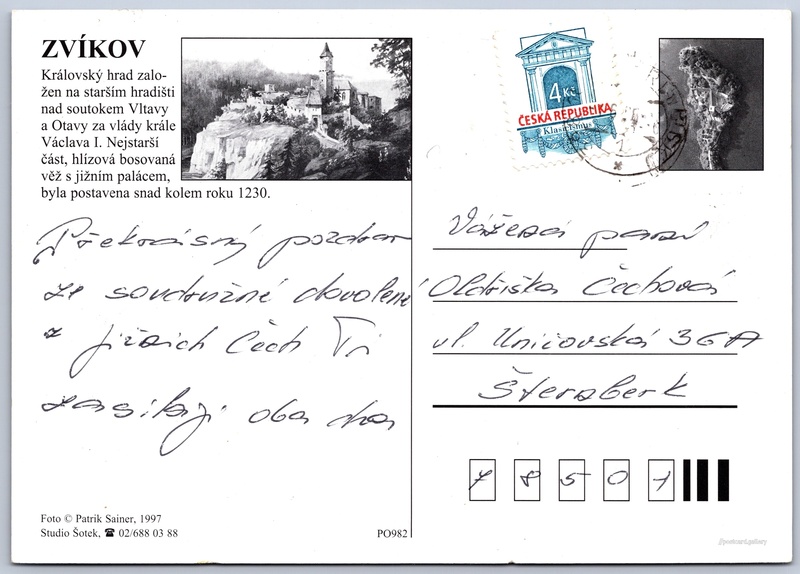 ZVÍKOV
Královský hrad zalo-
žen na starším hradišti
nad soutokem Vltavy
a Otavy za vlády krále
Václava I. Nejstarší
část, hlízová bosovaná
věž s jižním palácem,
byla postavena snad kolem roku 1230.
Překrásný pozdrav
ze soudružné dovolené
z jižních Čech Ti
zasílají oba
Foto © Patrik Sainer, 1997
Studio Šotek, ☎ 02/688 03 88
PO982
4 Kč
ČESKÁ REPUBLIKA
Klasicismus
Vážená paní
Oldřiška Čechová
ul. Uničovská 36A
Šternberk
78501